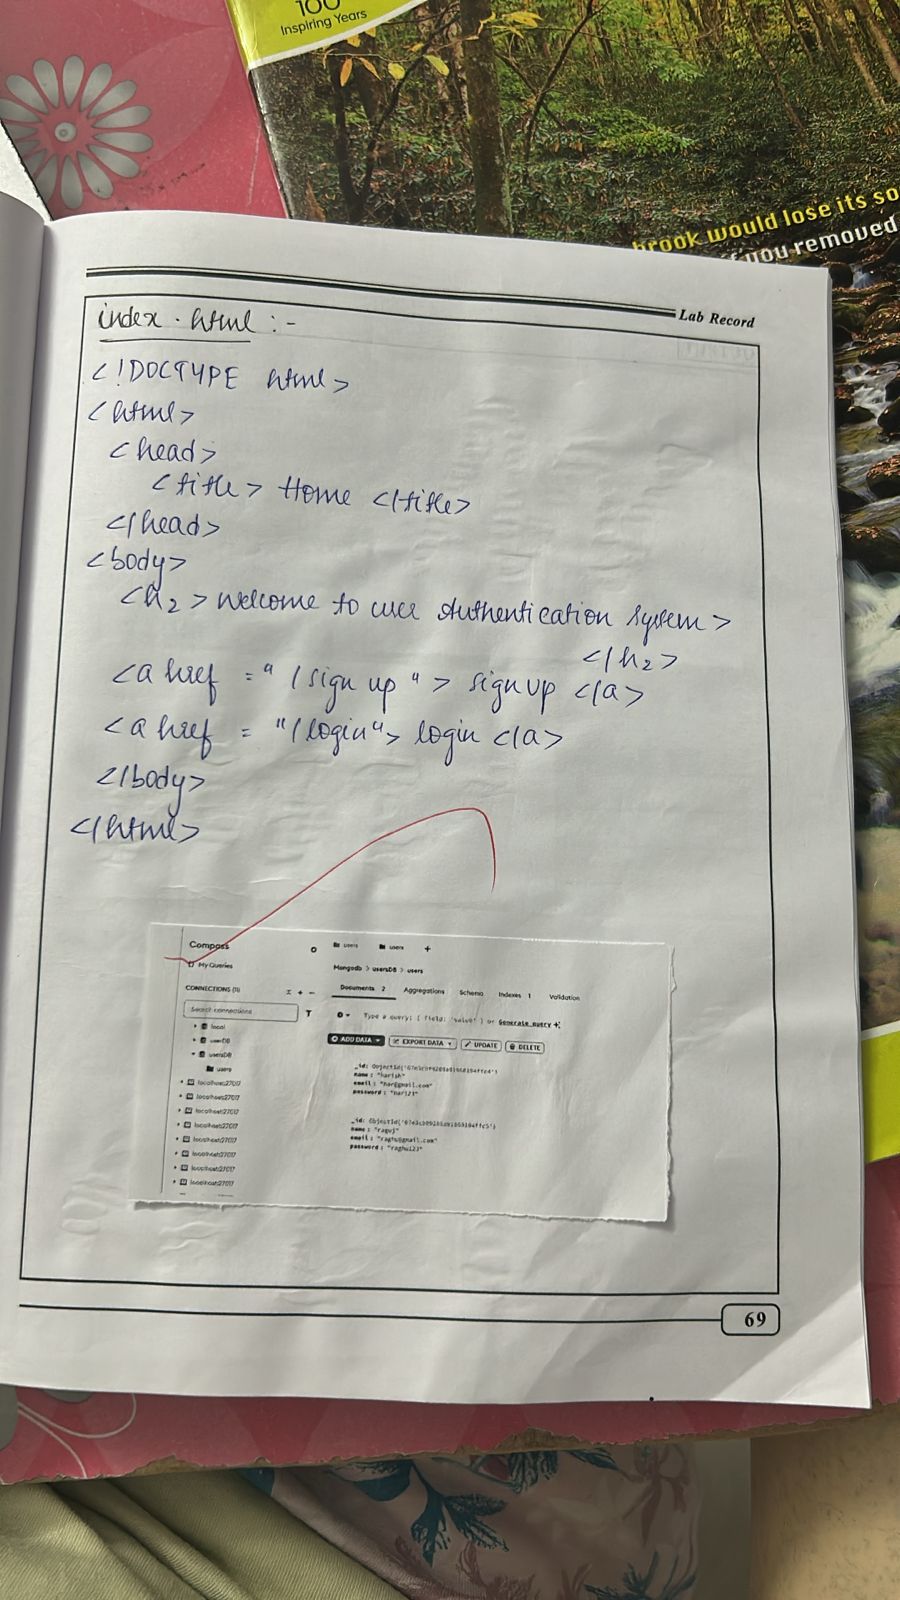 100
Inspiring Years
brook would lose its so
if you removed
Lab Record
index.html :-
<!DOCTYPE html>
<html>
<head>
<title> Home </title>
</head>
<body>
<h2> Welcome to user Authentication System>
</h2>
<a href = "/sign up"> signup </a>
<a href = "/login"> login </a>
</body>
</html>
Compass
My Queries
CONNECTIONS (11)
Search connections
local
userDB
usersDB
users
localhost:27017
localhost:27017
localhost:27017
localhost:27017
localhost:27017
localhost:27017
localhost:27017
localhost:27017
users
users
+
Mongodb > usersDB > users
Documents 2 Aggregations Schema Indexes 1 Validation
Type a query: { field: 'value' } or Generate query
ADD DATA EXPORT DATA UPDATE DELETE
_id: ObjectId(
name : "harish"
email : "har@gmail.com"
password : "har123"
_id: ObjectId(
name :
email : "raghu@gmail.com"
password : "raghu123"
69